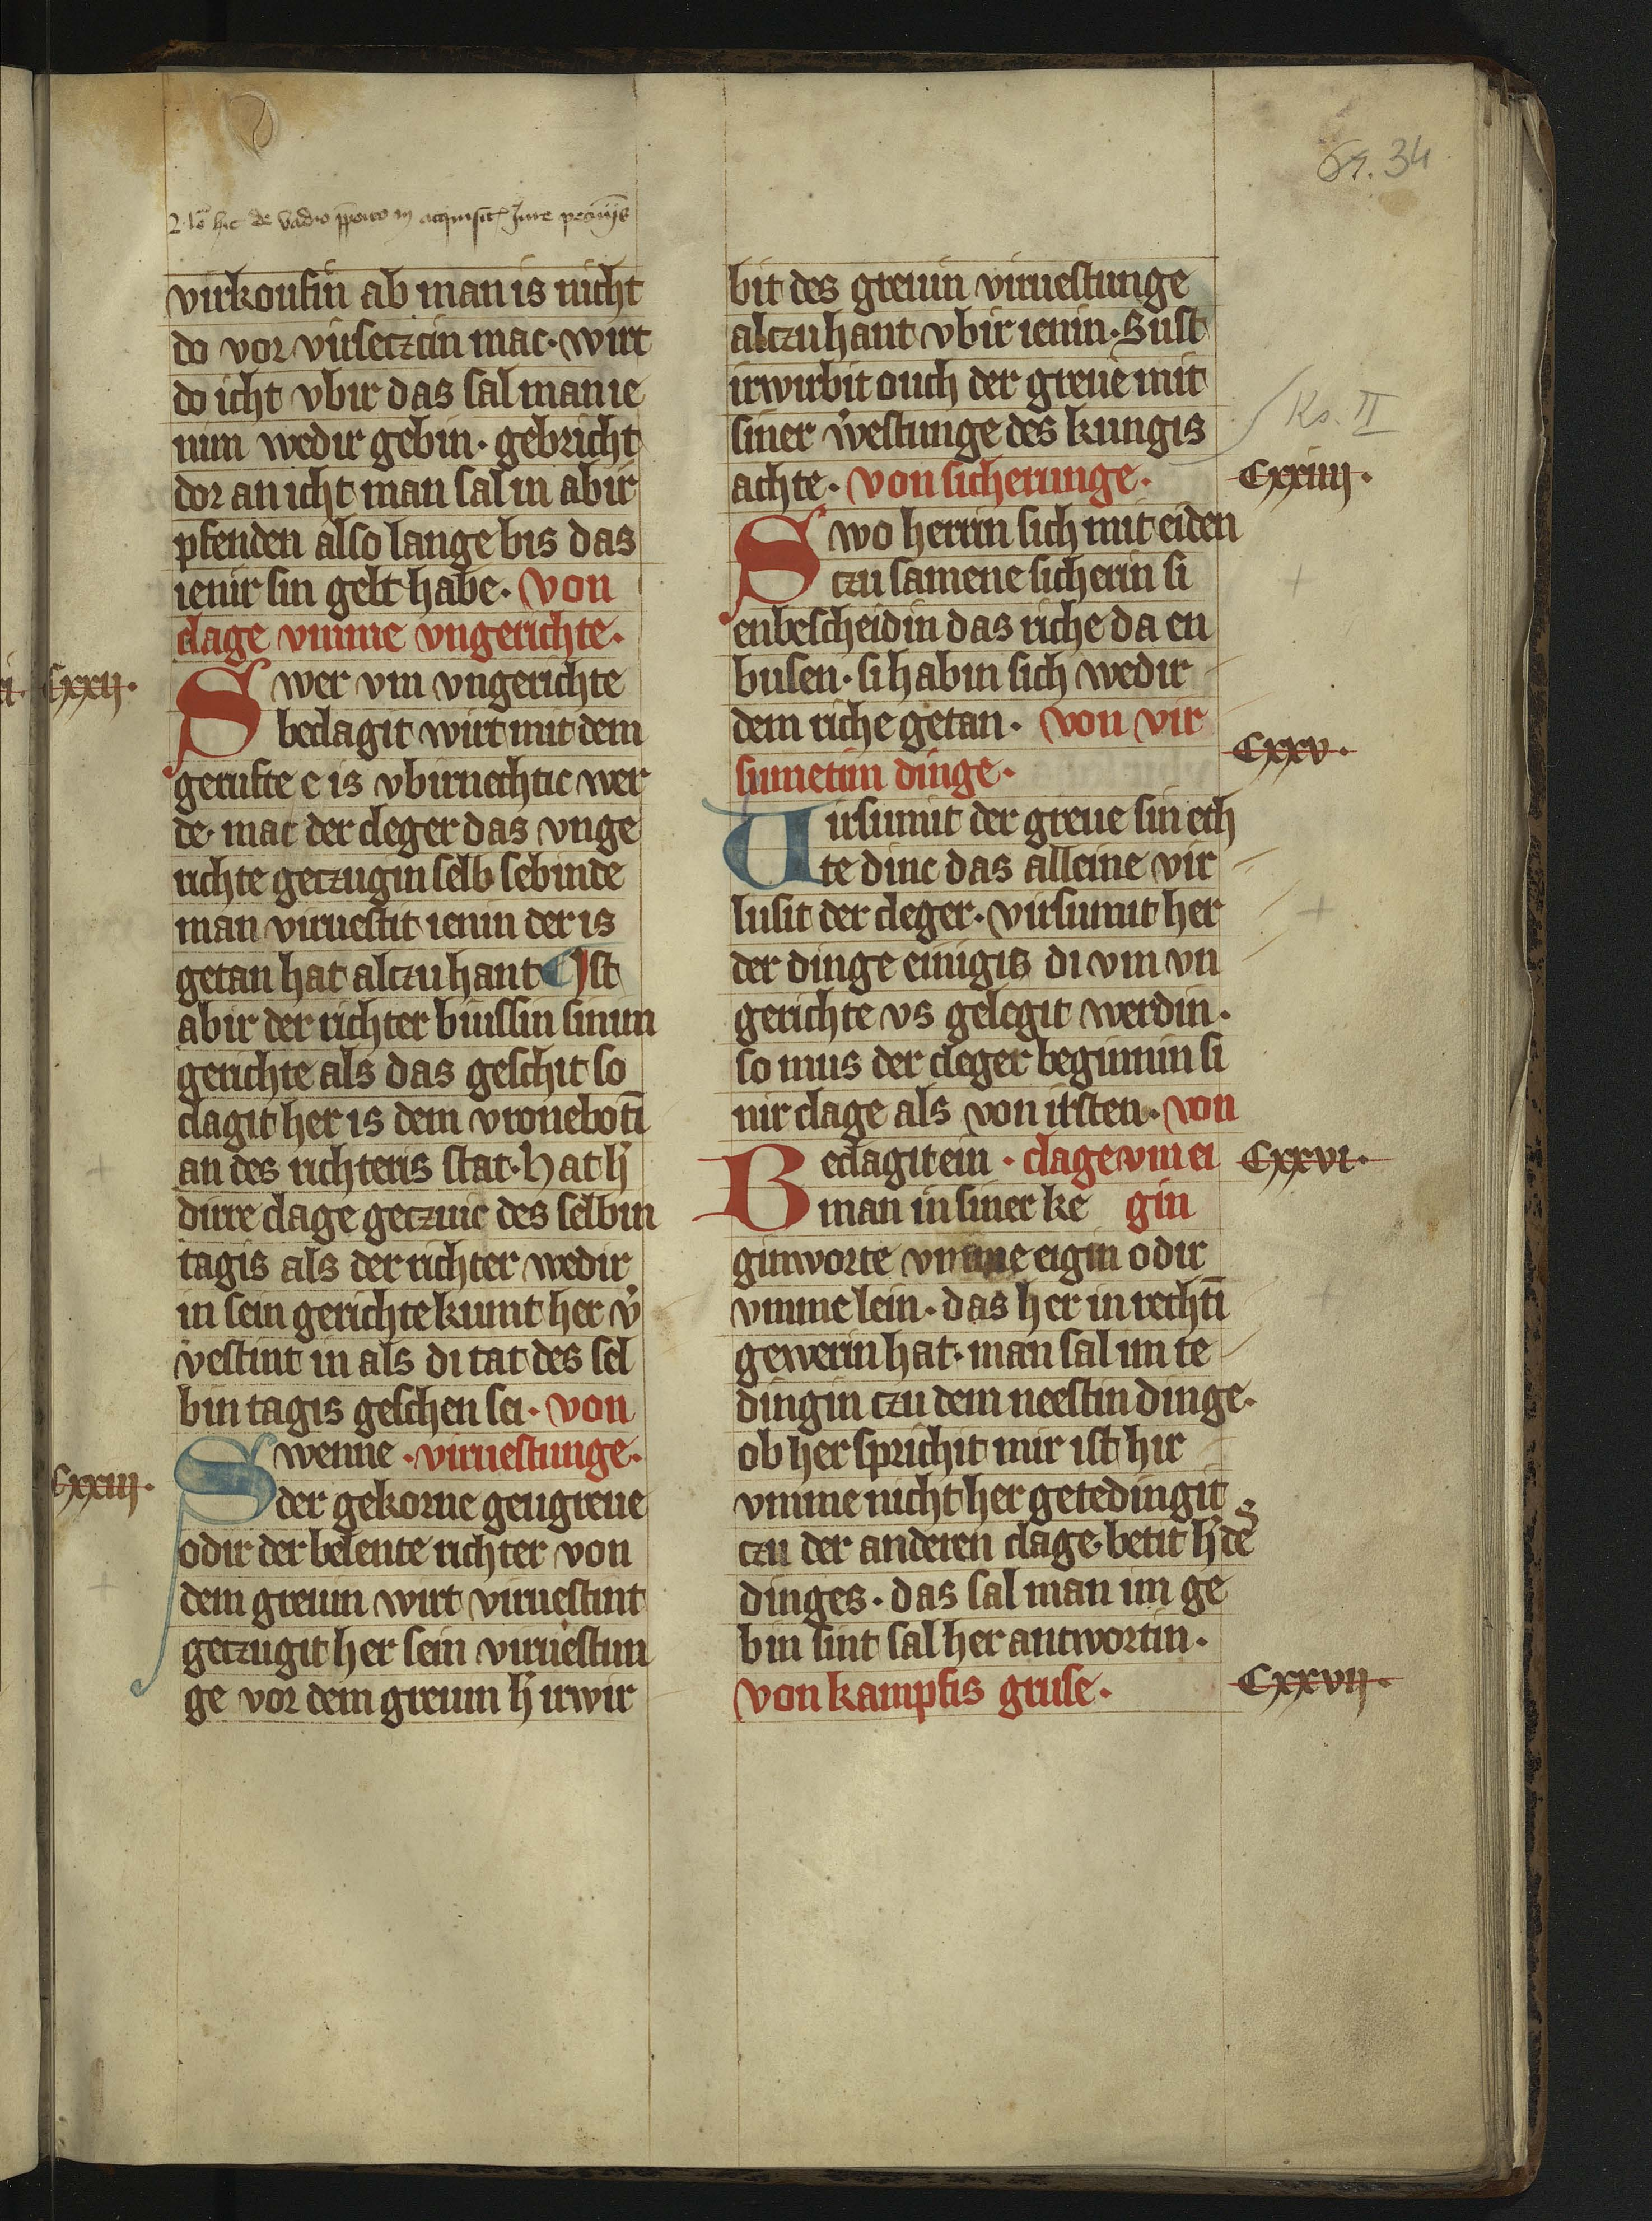 34
virkoufin ab man is nicht
do vor virseczcin mac · wirt
do icht vbir das sal man ie
nim wedir gebin · gebricht
dor an icht man sal in abir
pfenden also lange bis das
ienir sin gelt habe · von
clage vmme vngerichte ·
Cxxii ·
Swer vm vngerichte
beclagit wirt mit dem
gerufte e is vbirnechtic wer
de · mac der cleger das vnge
richte geczugin selb sebinde
man viruestit ienin der is
getan hat alczu hant Ist
abir der richter biussin sinim
gerichte als das geschit so
clagit her is dem vronebotī
an des richteris stat · Hat h̄
dirre clage geczuic des selbin
tagis als der richter wedir
in sein gerichte kumt her v̄
vestint in als di tat des sel
bin tagis geschen sei · von
Swenne · viruestunge ·
Cxxiii ·
der gekorne geugreue
odir der belente richter von
dem greuin wirt viruestint
geczugit her sein viruestun
ge vor dem greuin h̄ irwir
bit des greuin viruestunge
alczu hant vbir ienin · Sust
irwirbit ouch der greue mit
siner v̄vestunge des kungis
Ks. II
achte · von sicherunge ·
Cxxiiii ·
Swo herrin sich mit eiden
czu samene sicherin si
enbescheidin das riche da en
busen · si habin sich wedir
dem riche getan · von vir
sumetim dinge ·
Cxxv ·
Virsumit der greue sin ech
te dinc das alleine vir
lusit der cleger · virsumit her
der dinge einigis di vm vn
gerichte vs gelegit werdin ·
so mus der cleger beginnin si
nir clage als von irsten · von
Beclagit ein · clage vm ei
Cxxvi ·
man in siner ke gin
ginworte vmme eigin odir
vmme lein · das her in rechtī
gewerin hat · man sal im te
dingin czu dem neestin dinge ·
ob her sprichit mir ist hir
vmme nicht her getedingit
czu der anderen clage · betit h̄ des
dinges · das sal man im ge
bin sint sal her antwortin ·
von kampfis gruse ·
Cxxvii ·